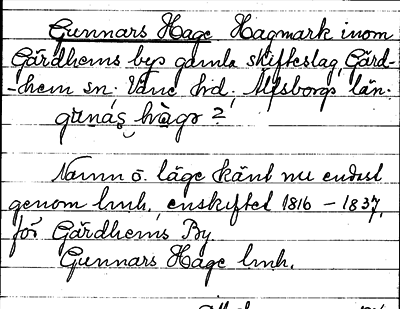 Gunnars Hage Hagmark inom
Gärdhems bys gamla skifteslag, Gärd-
-hem sn. Väne hd. Älfsborgs län.
gunás hàgə ?
Namn o. läge känt nu endast
genom lmh. enskiftet 1816 - 1837,
för Gärdhems By.
Gunnars Hage lmh.